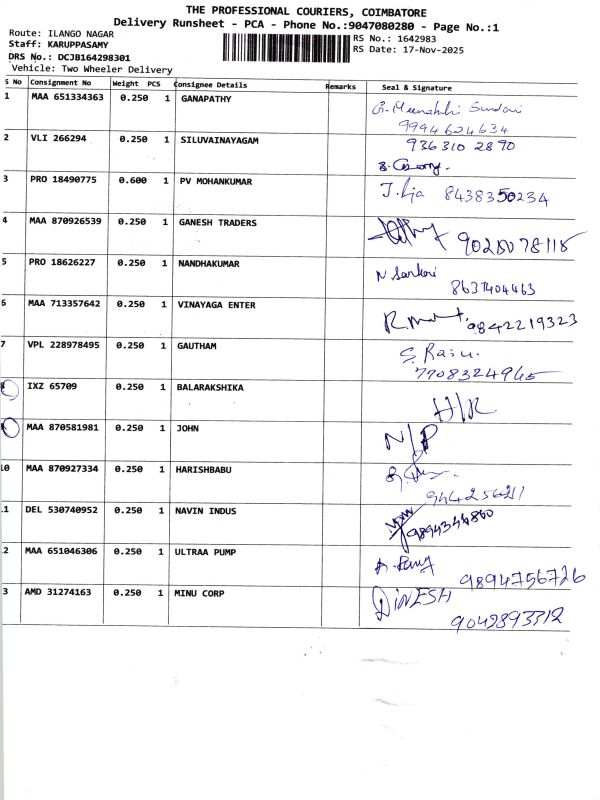 THE PROFESSIONAL COURIERS, COIMBATORE
Delivery Runsheet - PCA - Phone No.:9047080280 - Page No.:1
Route: ILANGO NAGAR
RS No.: 1642983
Staff: KARUPPASAMY
RS Date: 17-Nov-2025
DRS No.: DCJB164298301
Vehicle: Two Wheeler Delivery
S No Consignment No Weight PCS Consignee Details Remarks Seal & Signature
1 MAA 651334363 0.250 1 GANAPATHY G. Meenakshi Sundari
9994624634
2 VLI 266294 0.250 1 SILUVAINAYAGAM 936310 2890
3 PRO 18490775 0.600 1 PV MOHANKUMAR 8438350234
4 MAA 870926539 0.250 1 GANESH TRADERS
5 PRO 18626227 0.250 1 NANDHAKUMAR
8637404463
6 MAA 713357642 0.250 1 VINAYAGA ENTER 9842219323
7 VPL 228978495 0.250 1 GAUTHAM S. Raju.
7708324965
8 IXZ 65709 0.250 1 BALARAKSHIKA H/R
9 MAA 870581981 0.250 1 JOHN N/P
10 MAA 870927334 0.250 1 HARISHBABU
11 DEL 530740952 0.250 1 NAVIN INDUS
12 MAA 651046306 0.250 1 ULTRAA PUMP
9894756726
13 AMD 31274163 0.250 1 MINU CORP DINESH
9042893312